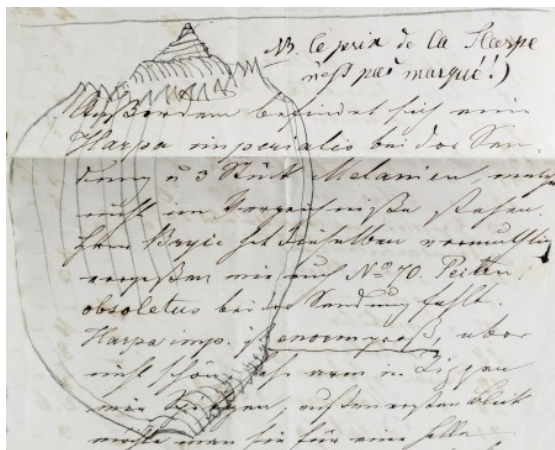 NB. le prix de la Harpe
n'est pas marqué!)
Außerdem befindet sich eine
Harpa imperialis bei der Sen-
dung u 3 Stück Melanien, welche
nicht im Verzeichniße stehen.
Herr dieselben vermuthlich
vergeßen wie auch No 70. Pecten
obsoletus bei der Sendung fehlt.
Harpa imp. ist enorm groß, aber
nicht schön, sehr arm in
auf den ersten Blick
möchte man sie für eine